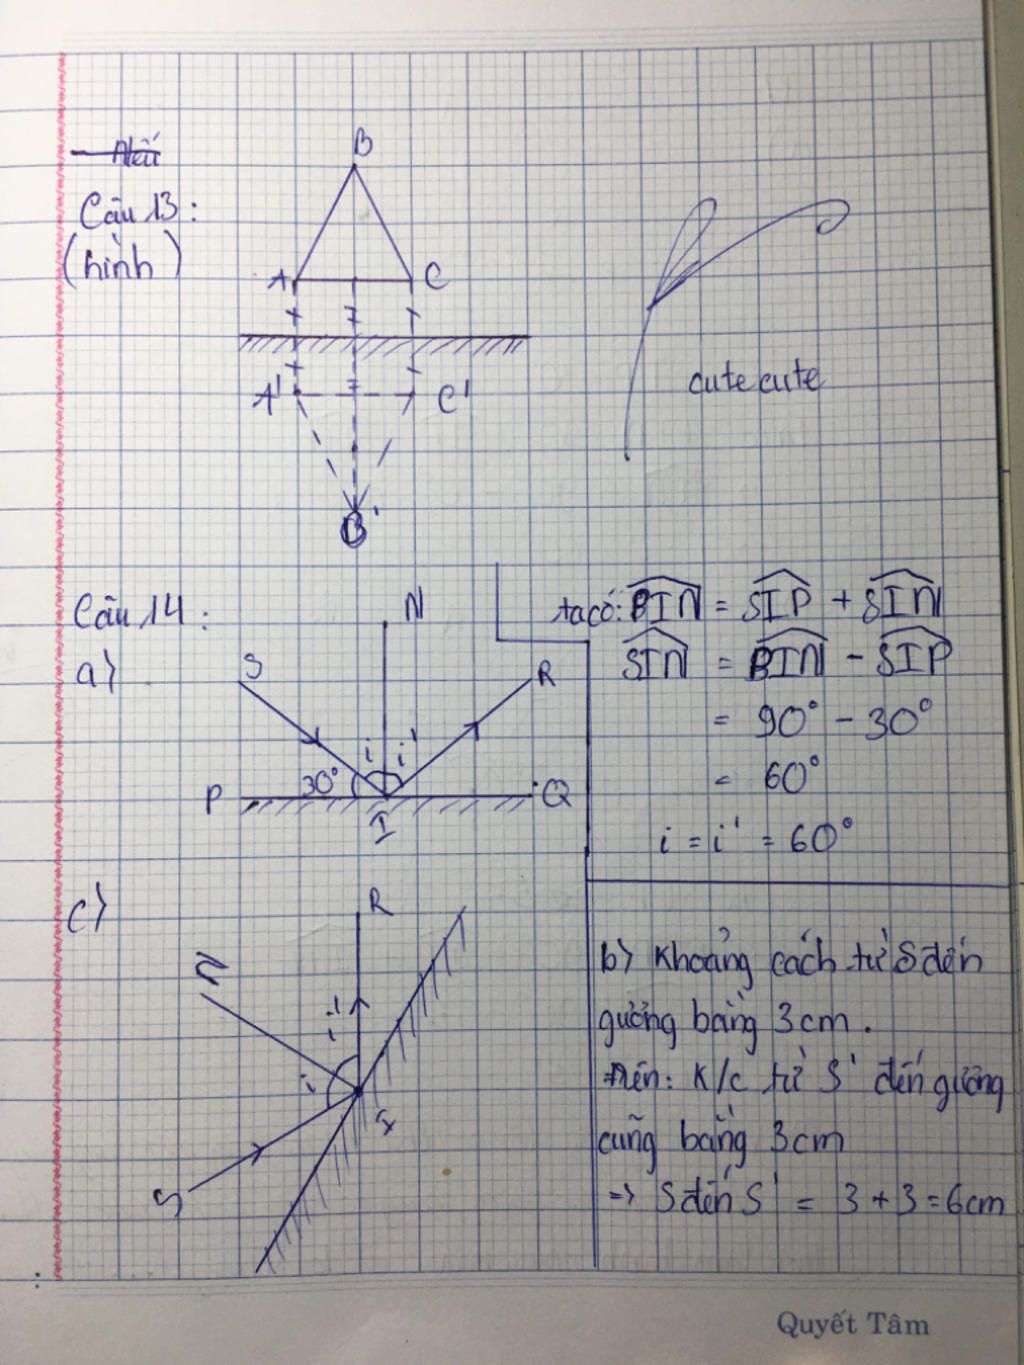 B
Câu 13:
(hình)
A
C
A'
C'
cute cute
B'
Câu 14:
a)
N
S
R
i
i'
30°
P
Q
I
ta có: PIN = SIP + SIN
SIN = PIN - SIP
= 90° - 30°
= 60°
i = i' = 60°
c)
R
N
i'
i
I
S
b) Khoảng cách từ S đến
gương bằng 3cm.
Nên: K/c từ S' đến gương
cũng bằng 3cm
=> S đến S' = 3 + 3 = 6cm
Quyết Tâm